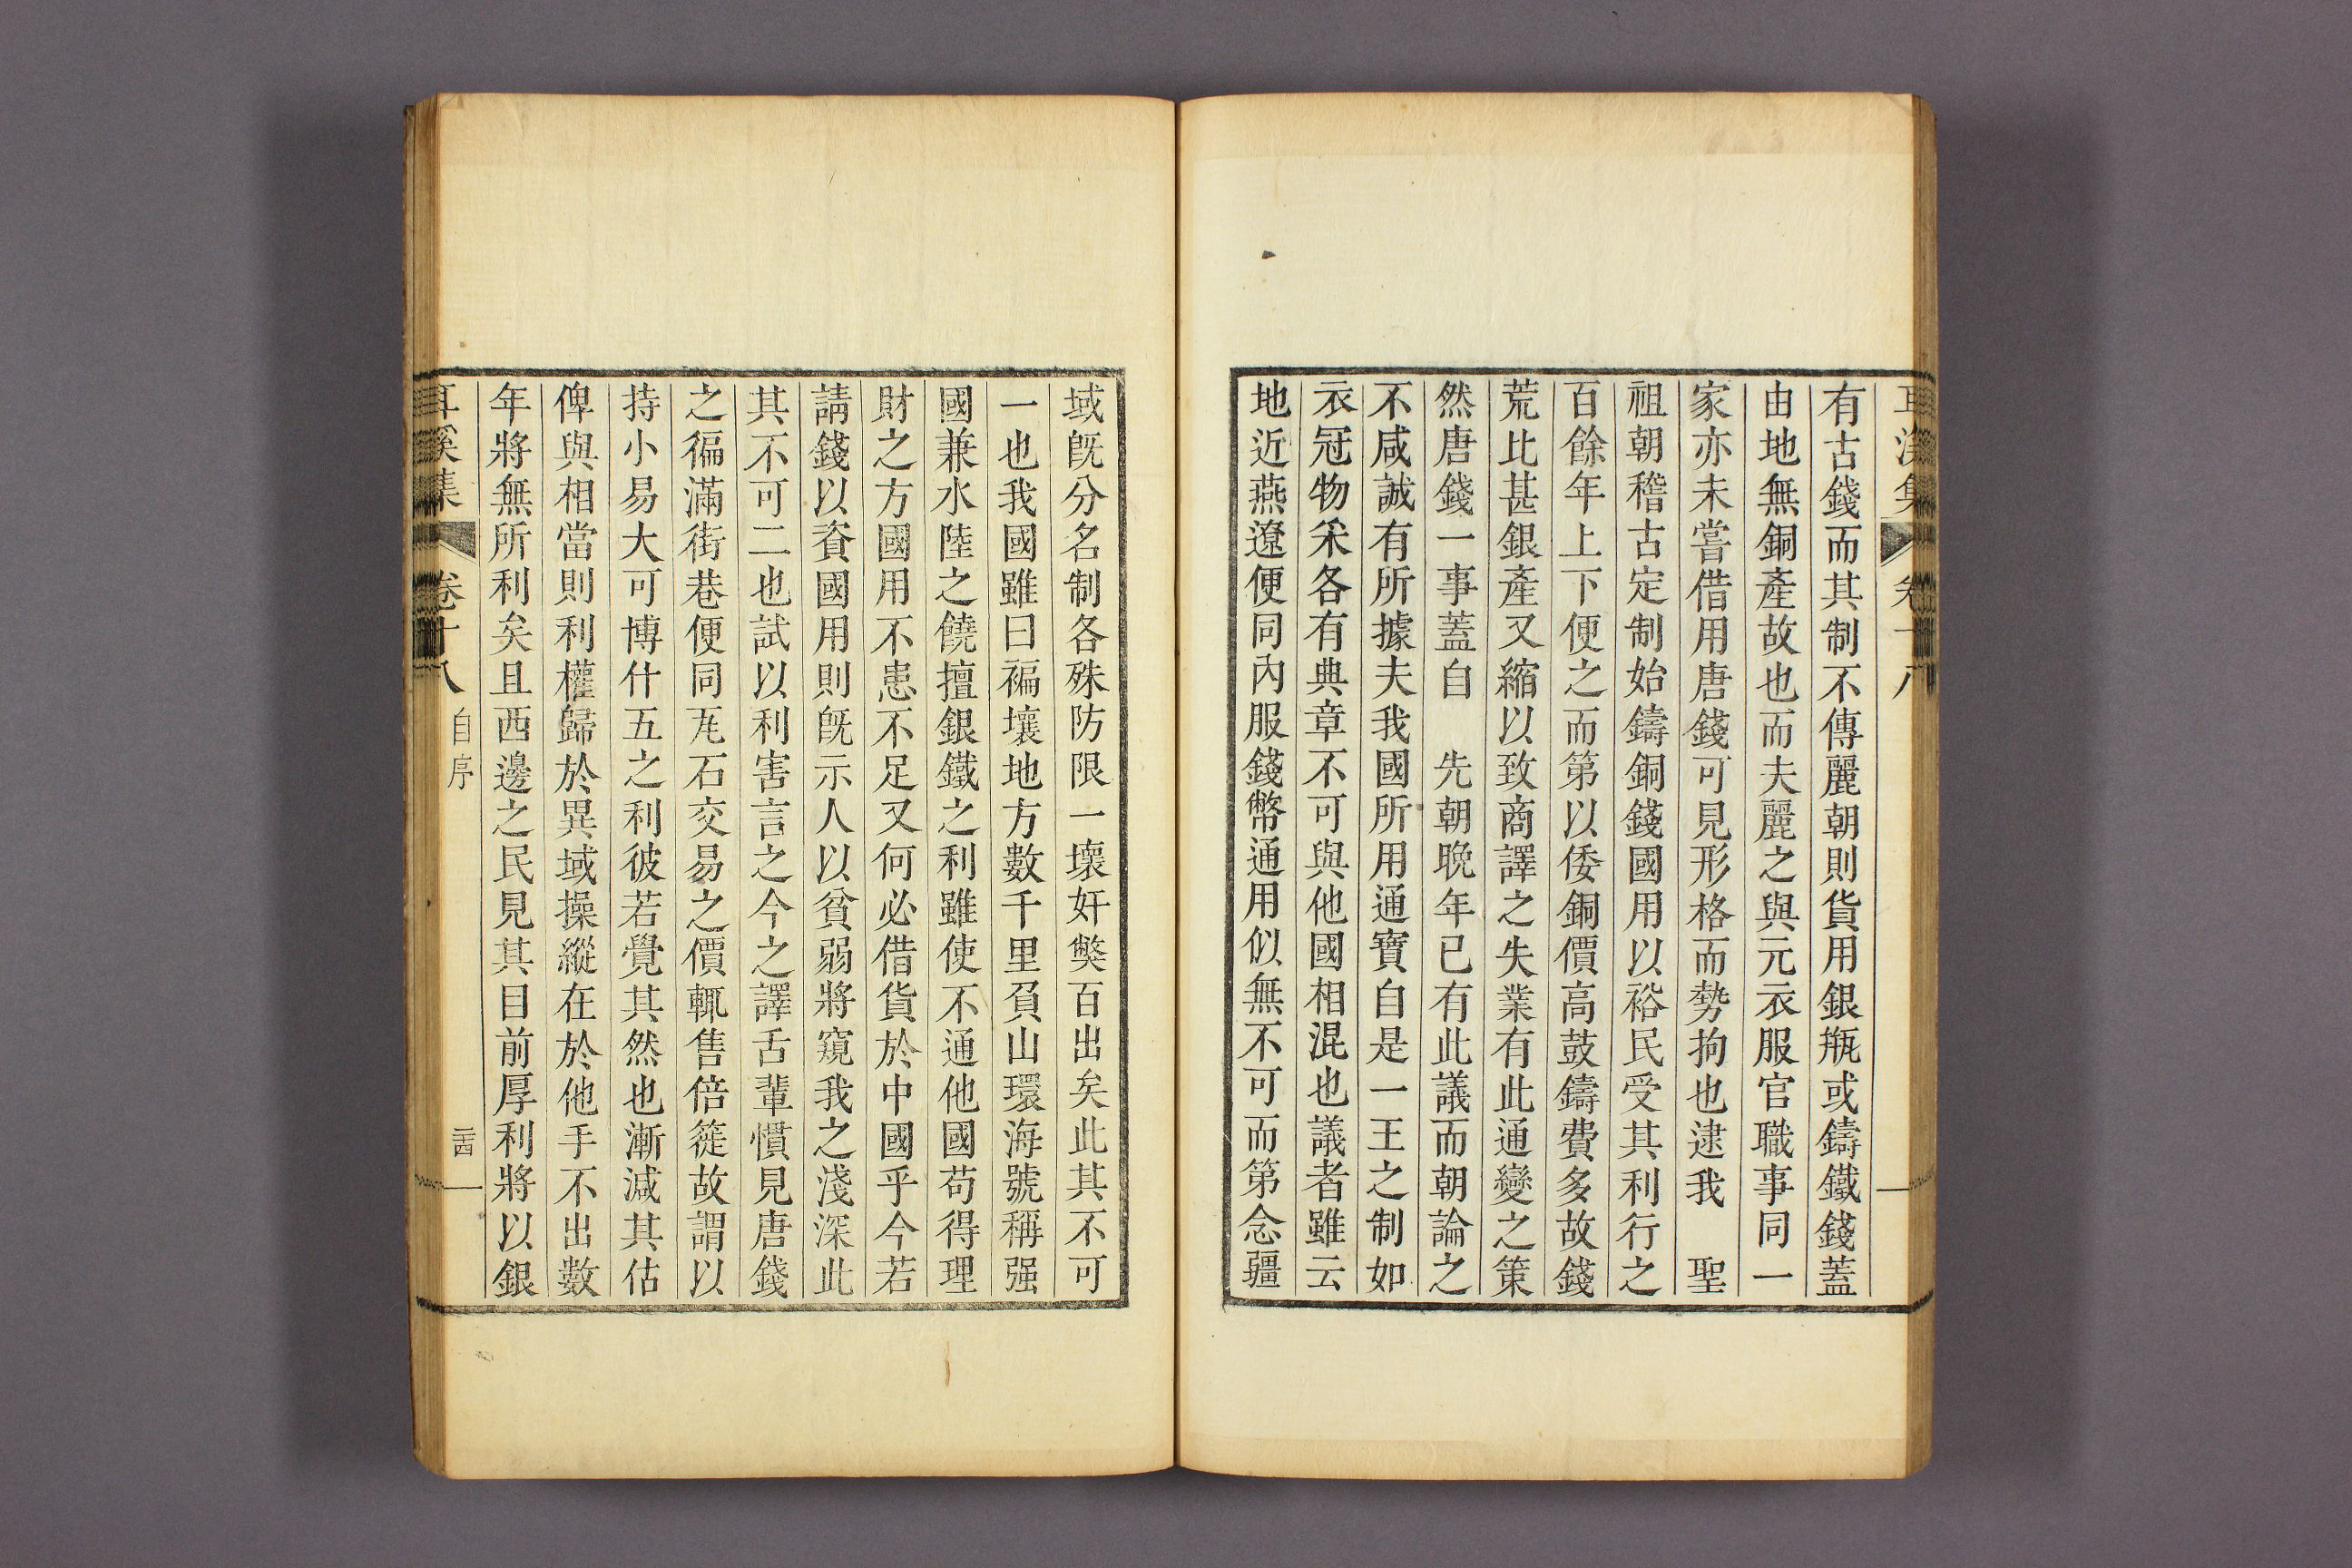 耳溪集 卷十八
有古錢而其制不傳麗朝則貨用銀甁或鑄鐵錢蓋
由地無銅產故也而夫麗之與元衣服官職事同一
家亦未嘗借用唐錢可見形格而勢拘也逮我 聖
祖朝稽古定制始鑄銅錢國用以裕民受其利行之
百餘年上下便之而第以倭銅價高鼓鑄費多故錢
荒比甚銀產又縮以致商譯之失業有此通變之策
然唐錢一事蓋自 先朝晩年已有此議而朝論之
不咸誠有所據夫我國所用通寶自是一王之制如
衣冠物采各有典章不可與他國相混也議者雖云
地近燕遼便同內服錢幣通用似無不可而第念疆
域旣分名制各殊防限一壞奸獘百出矣此其不可
一也我國雖曰褊壤地方數千里負山環海號稱强
國兼水陸之饒擅銀鐵之利雖使不通他國苟得理
財之方國用不患不足又何必借貨於中國乎今若
請錢以資國用則旣示人以貧弱將窺我之淺深此
其不可二也試以利害言之今之譯舌輩慣見唐錢
之徧滿街巷便同瓦石交易之價輒售倍蓰故謂以
持小易大可博什五之利彼若覺其然也漸減其估
俾與相當則利權歸於異域操縱在於他手不出數
年將無所利矣且西邊之民見其目前厚利將以銀
耳溪集 卷十八 自序 二十四